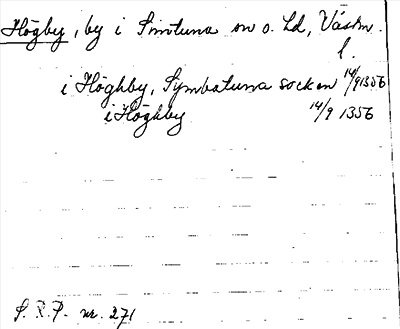 Högby, by i Simtuna sn o. hd, Västm.
l.
i Höghby, Symbatuna socken 14/9 1356
i Höghby 14/9 1356
S.R.P. nr. 271